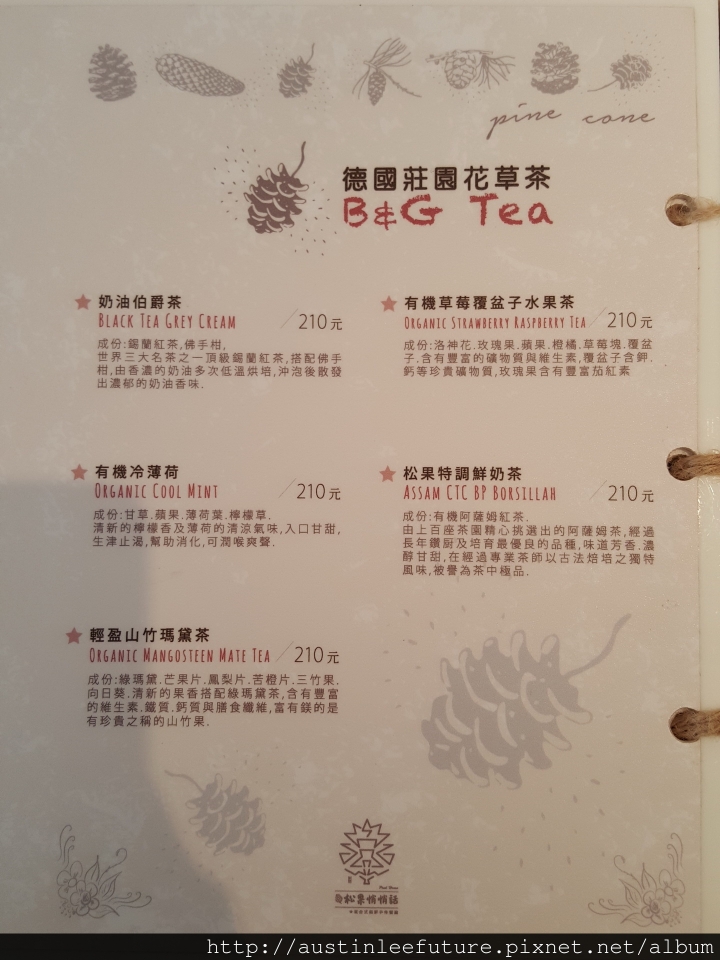 pine cone
德國莊園花草茶
B&G Tea
奶油伯爵茶
Black Tea Grey Cream
210元
成份:錫蘭紅茶,佛手柑,
世界三大名茶之一頂級錫蘭紅茶,搭配佛手
柑,由香濃的奶油多次低溫烘培,沖泡後散發
出濃郁的奶油香味.
有機草莓覆盆子水果茶
Organic Strawberry Raspberry Tea
210元
成份:洛神花.玫瑰果.蘋果.橙橘.草莓塊.覆盆
子.含有豐富的礦物質與維生素,覆盆子含鉀.
鈣等珍貴礦物質,玫瑰果含有豐富茄紅素
有機冷薄荷
Organic Cool Mint
210元
成份:甘草.蘋果.薄荷葉.檸檬草.
清新的檸檬香及薄荷的清涼氣味,入口甘甜,
生津止渴,幫助消化,可潤喉爽聲.
松果特調鮮奶茶
Assam CTC BP Borsillah
210元
成份:有機阿薩姆紅茶.
由上百座茶園精心挑選出的阿薩姆茶,經過
長年鑽厨及培育最優良的品種,味道芳香.濃
醇甘甜,在經過專業茶師以古法焙培之獨特
風味,被譽為茶中極品.
輕盈山竹瑪黛茶
Organic Mangosteen Mate Tea
210元
成份:綠瑪黛.芒果片.鳳梨片.苦橙片.三竹果.
向日葵.清新的果香搭配綠瑪黛茶,含有豐富
的維生素.鐵質.鈣質與膳食纖維,富有鎂的是
有珍貴之稱的山竹果.
松果悄悄話
http://austinleefuture.pixnet.net/album